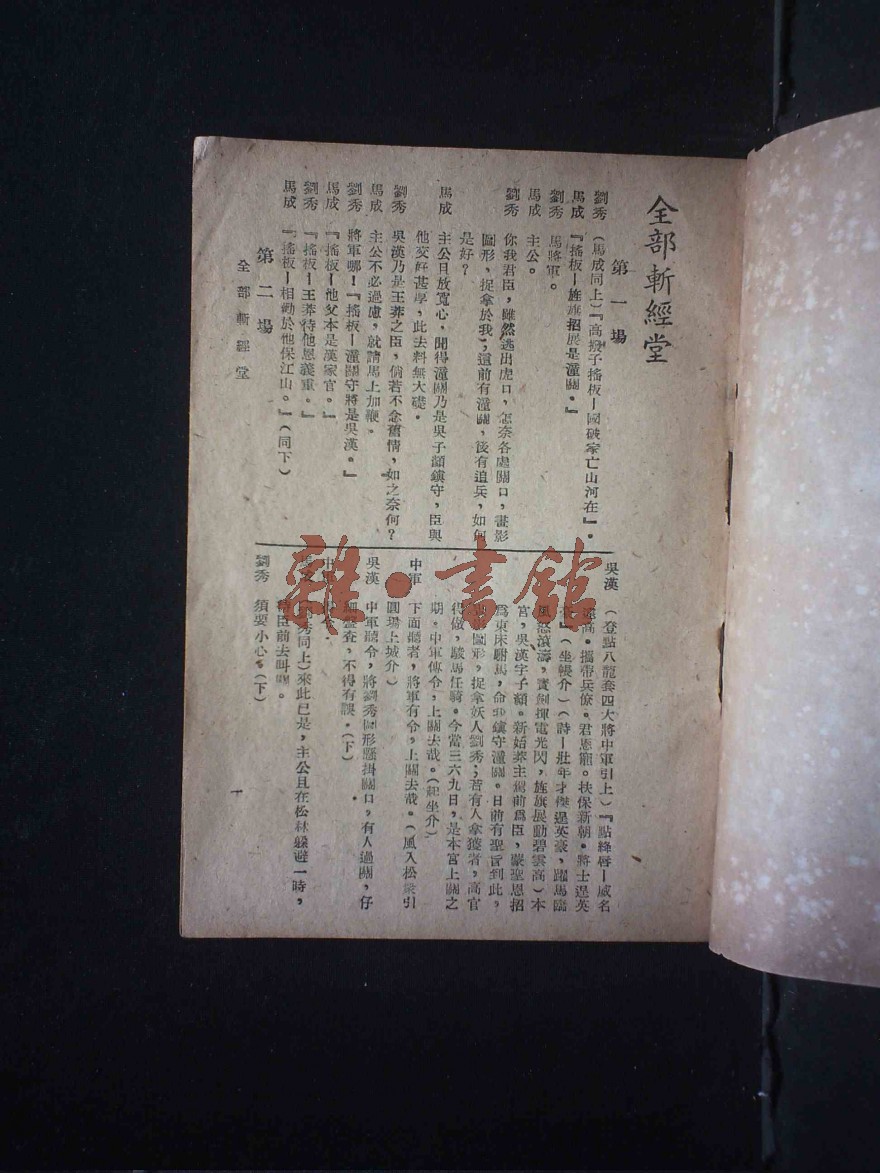 全部斬經堂
第一場
劉秀（馬成同上）『高撥子搖板—國破家亡山河在』。
馬成『搖板—旌旗招展是潼關。』
劉秀　馬將軍。
馬成　主公。
劉秀　你我君臣，雖然逃出虎口，怎奈各處關口，畫影
圖形，捉拿於我；這前有潼關，後有追兵，如何
是好？
馬成　主公且放寬心，聞得潼關乃是吳子顏鎮守，臣與
他交好甚厚，此去料無大礙。
劉秀　吳漢乃是王莽之臣，倘若不念舊情，如之奈何？
馬成　主公不必過慮，就請馬上加鞭。
劉秀　將軍哪！『搖板—潼關守將是吳漢。』
馬成　『搖板—他父本是漢家官。』
劉秀　『搖板—王莽待他恩義重。』
馬成　『搖板—相勸於他保江山。』（同下）
第二場
全部斬經堂
吳漢　（登點八龍套四大將中軍引上）『點絳唇—威名
高。攜帶兵僚。君恩寵。扶保新朝。將士逞英
』（坐帳介）（詩—壯年才傑逞英豪，躍馬臨
風怒濤，寶劍揮電光閃，旌旗展動碧雲高）本
宮，吳漢字子顏。新始莽主駕前爲臣，蒙聖恩招
爲東床駙馬，命我鎮守潼關。日前有聖旨到此，
圖形，捉拿妖人劉秀；若有人拿獲者，高官
得做，駿馬任騎。今當三六九日，是本宮上關之
期。中軍傳令，上關去哉。（起坐介）
中軍　下面聽者，將軍有令，上關去哉。（風入松衆引
圓場上城介）
吳漢　中軍聽令，將劉秀圖形懸掛關口，有人過關，仔
細盤查，不得有誤。（下）
中軍
馬成（劉秀同上）來此已是，主公且在松林躲避一時，
待臣前去叫關。
劉秀　須要小心。（下）
十
雜·書館